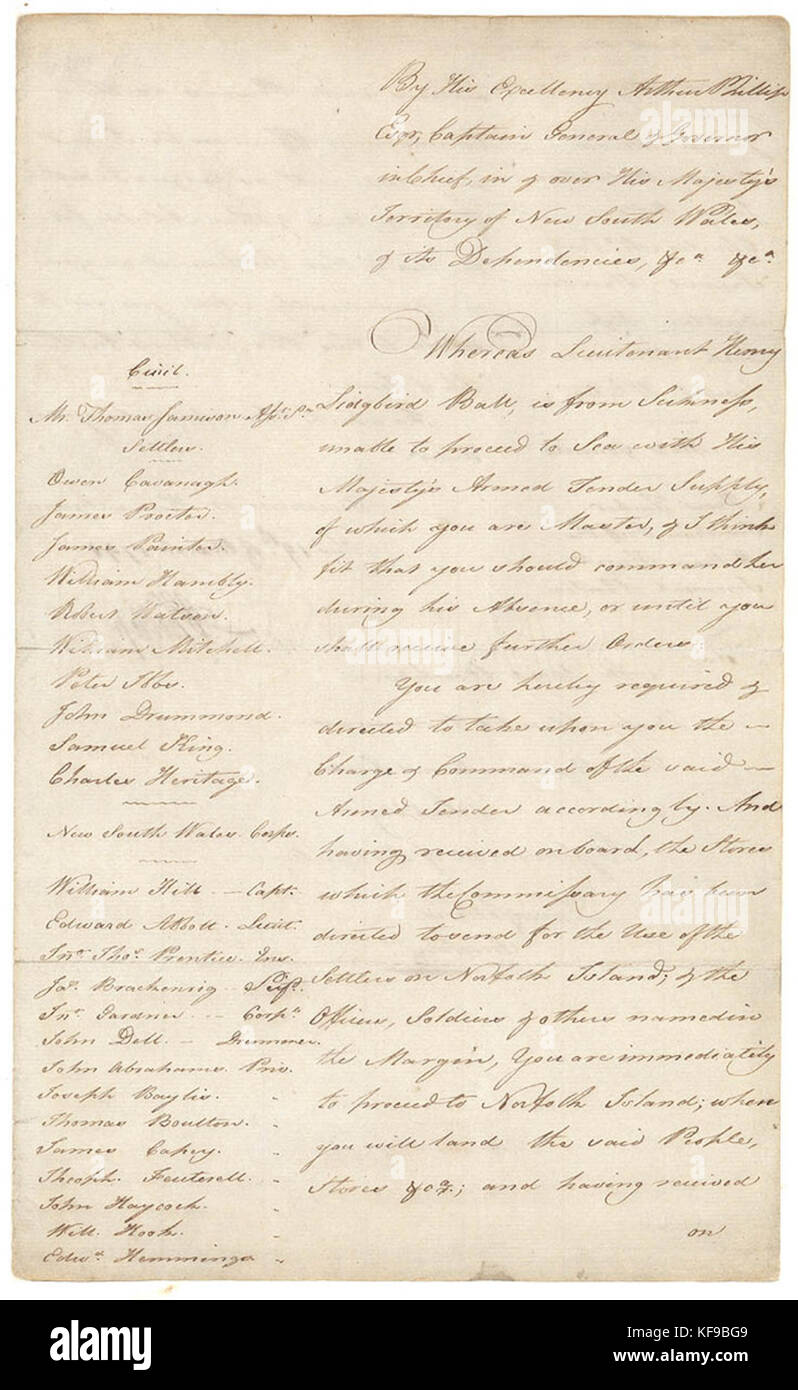 By His Excellency Arthur Phillip
Esqr, Captain General & Governor
in Chief, in & over His Majesty's
Territory of New South Wales,
& its Dependencies, &ca &ca.
Whereas Lieutenant Henry
Lidgbird Ball, is from Sickness,
unable to proceed to Sea with His
Majesty's Armed Tender Supply,
of which you are Master, & I think
fit that you should command her
during his Absence, or until you
shall receive further Orders:
You are hereby required &
directed to take upon you the —
Charge & Command of the said —
Armed Tender accordingly. And
having received on board, the Stores
which the Commissary has been
directed to send for the Use of the
Settlers on Norfolk Island; & the
Officers, Soldiers & others named in
the Margin, You are immediately
to proceed to Norfolk Island; when
you will land the said People,
Stores &ca.; and having received
on
Civil.
Mr. Thomas Jamison Asst. Sn
Settlers.
Owen Cavanagh.
James Proctor.
James Painter.
William Hambly.
Robert Watson.
William Mitchell.
Peter Ibbs.
John Drummond.
Samuel King.
Charles Heritage.
New South Wales Corps.
William Hill — Capt.
Edward Abbott. Lieut.
Jno. Thos. Prentice. Ens.
Jas. Brackenrig — Serjt.
Jno. Gardner — Corpl.
John Dell — Drummer.
John Abrahams. Priv.
Joseph Baylis. "
Thomas Boulton. "
James Capey. "
Theoph. Feuterell. "
John Haycock. "
Will. Hook. "
Edwd. Hemmings "
alamy
alamy
www.alamy.com
Image ID: KF9BG9